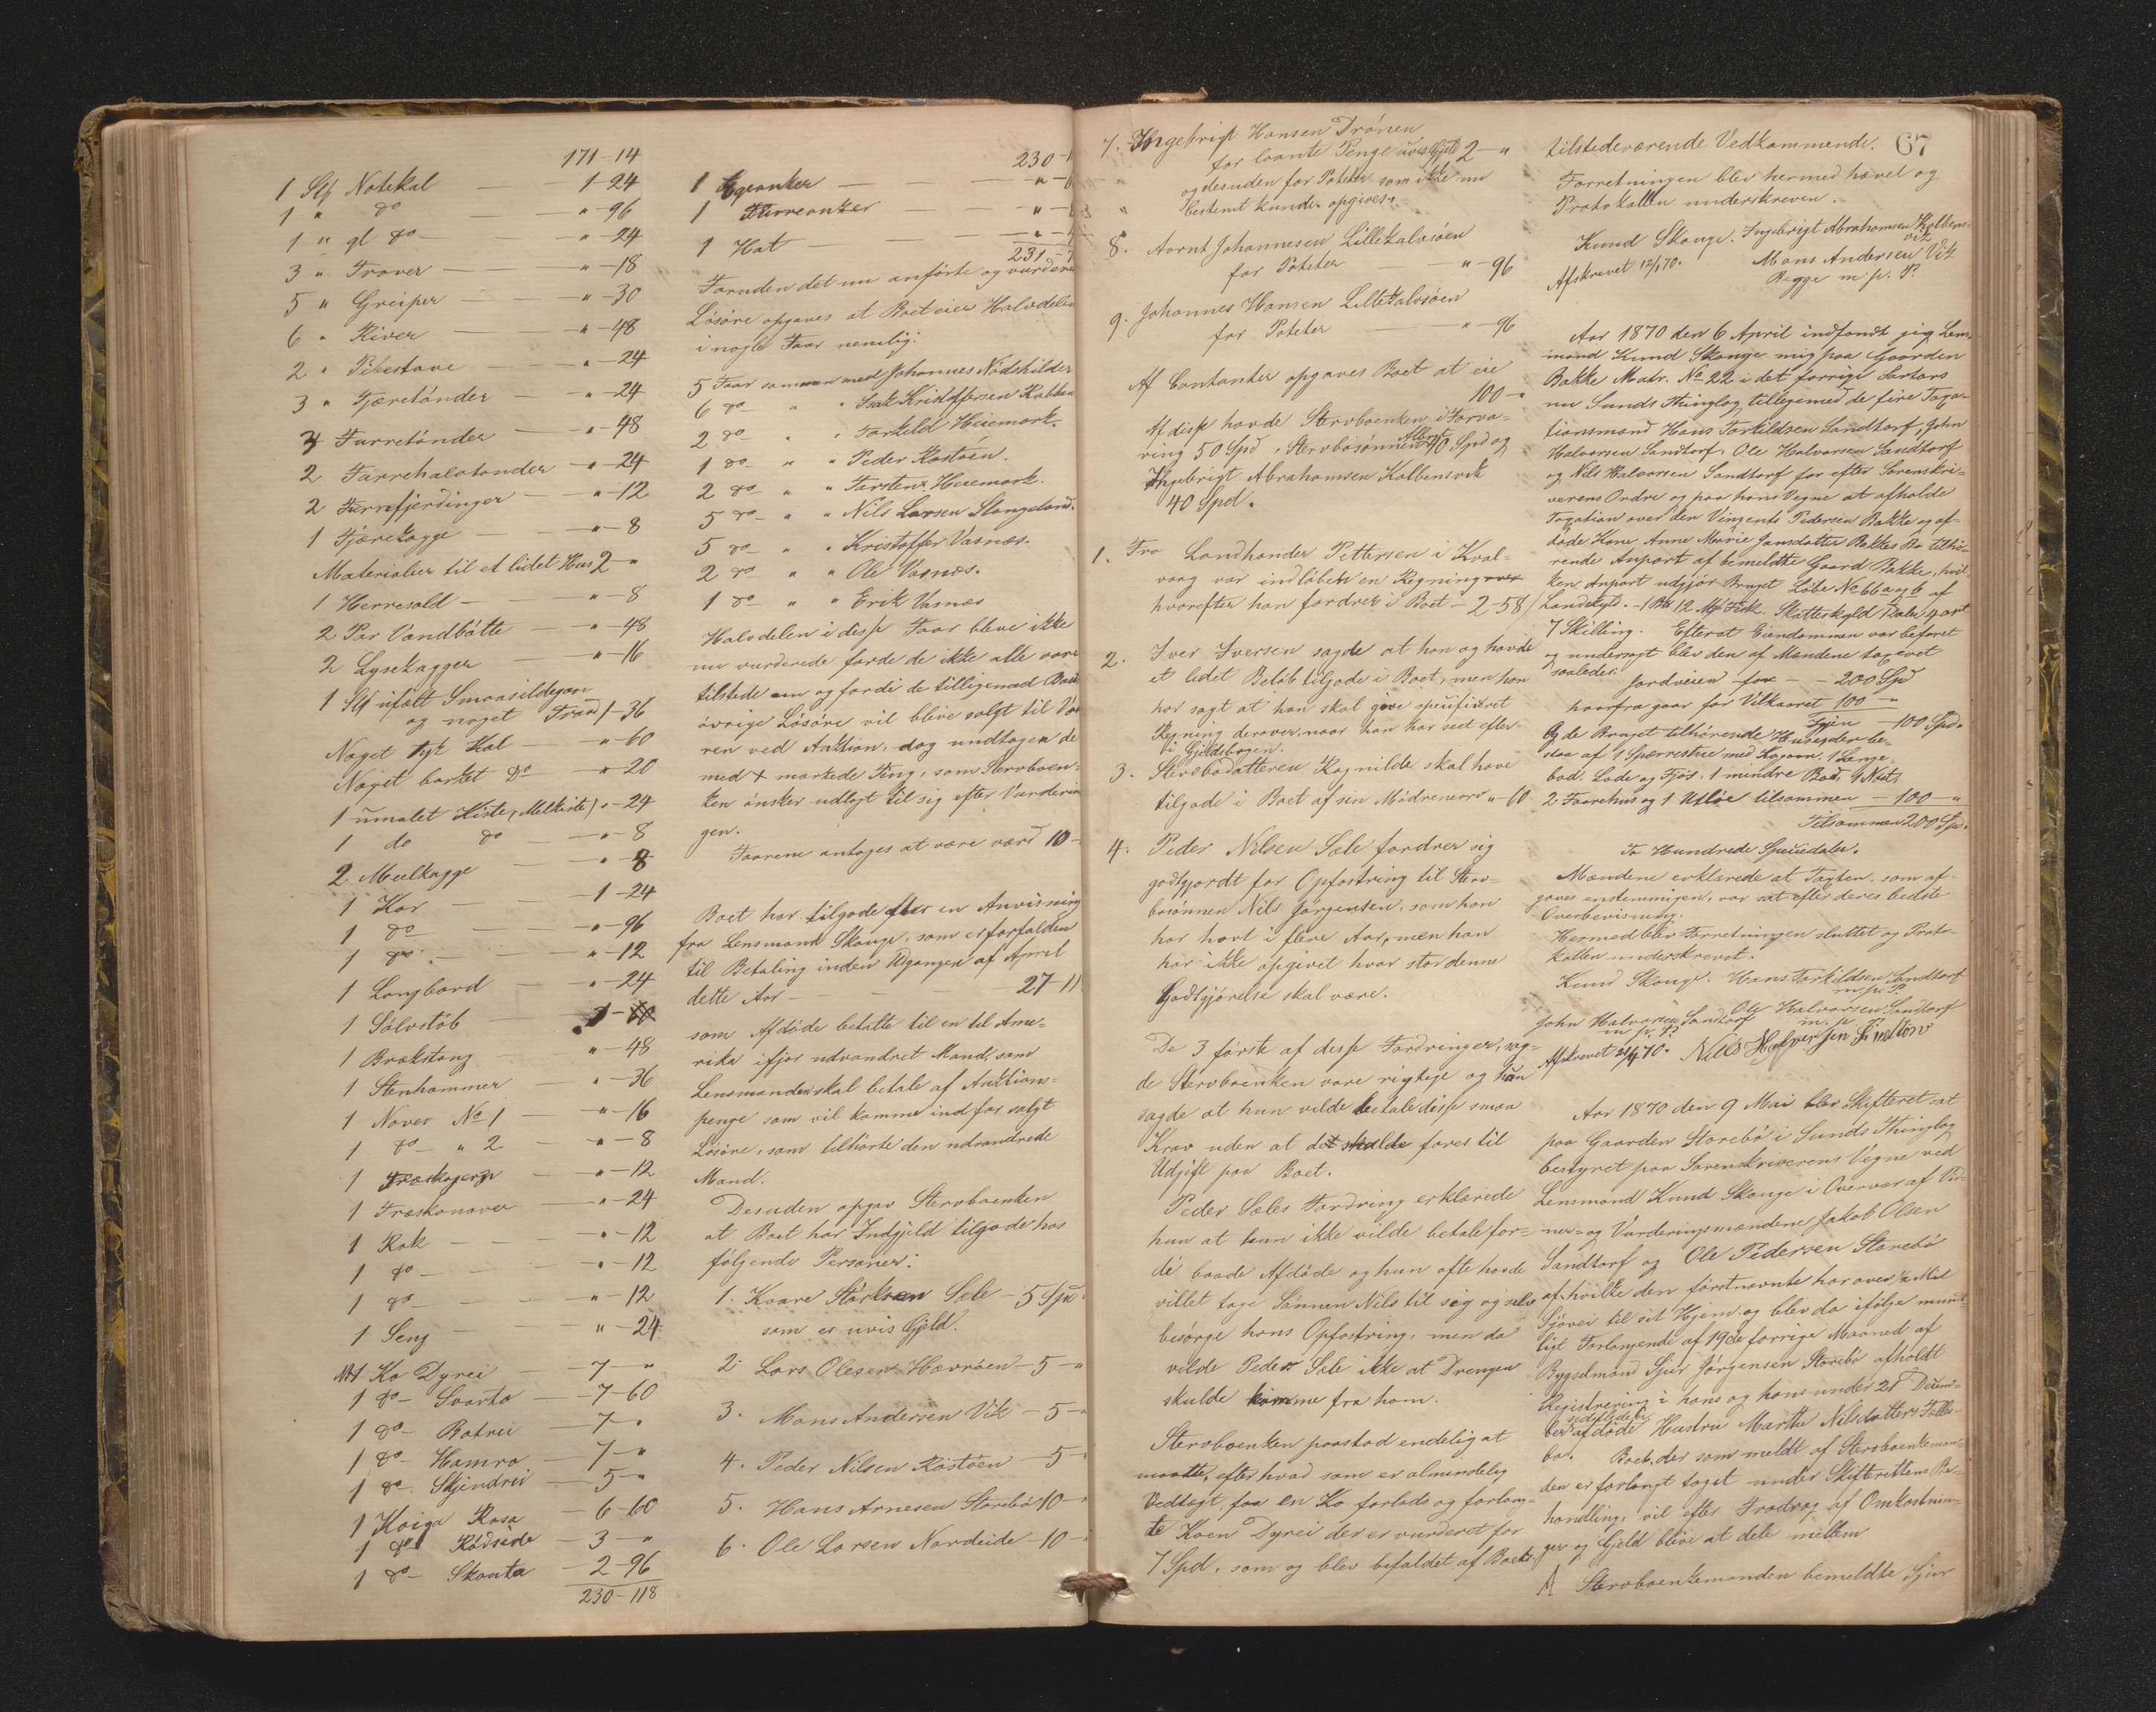 171-14
1 Stk Notekal — 1-24
1 " do — " -96
1 " gl do — " -24
3 " Trover — " -18
5 " Greiper — " -30
6 " River — " -48
2 " Pibestave — " -24
3 " Tjæretönder — " -24
4 Turretönder — " -48
2 Turrehalvtönder — " -24
2 Turrefjerdinger — " -12
1 Tjærekagge — " -8
Materialier til et lidet Hus 2 - "
1 Herresold — " -8
2 Par Vandbötte — " -48
2 Lysekagger — " -16
1 Stk ufält Smaasildegarn
og noget Traad 1-36
Noget Kal — " -60
Noget barket do — " -20
1 umalet Kiste, (Melkiste) " -24
1 do do — " -8
2 Meelkagge — " -8
1 Kar — 1-24
1 do — " -96
1 do — " -12
1 Langbord — " -24
1 Sölvstöb — 1-
1 Brækstang — " -48
1 Stenhammer — " -36
1 Naver No 1 — " -16
1 do " 2 — " -8
1 — " -12
1 Træskonaver — " -24
1 Rok — " -12
1 do — " -12
1 do — " -12
1 Seng — " -24
1 Ko Dyrei — 7 - "
1 do Svarta — 7-60
1 do Botrei — 7 - "
1 do Hamra — 7 - "
1 do Skjendrei — 5 - "
1 Kviga Rosa — 6-60
1 do Rödside — 3 - "
1 do Skauta — 2-96
230-118
230-
1 Egeanker — "
1 Furreanker — "
1 Hat — "
231-
Foruden det nu anförte og vurderede
Lösöre opgaves at Boet eier Halvdelen
i nogle Faar nemlig:
5 Faar sammen med Johannes Nödskilder
6 do " " Isak Kristoffersen Kobben
2 do " " Torkild Heiemark.
1 do " " Peder Rostöen.
2 do " " Torsten Heiemark.
5 do " " Nils Larsen Stangeland.
5 do " " Kristoffer Vasnæs.
2 do " " Ole Vasnæs.
1 do " " Erik Vasnæs
Halvdelen i disse Faar bleve ikke
nu vurderede fordi de ikke alle vare
tilstede og fordi de tilligemed Boets
övrige Lösöre vil blive solgt til Vaa-
ren ved Auktion, dog undtagen de
med + mærkede Ting, som Stervboen-
ken önsker udlagt til sig efter Vurderin
gen.
Faarene antages at være værd 10 -
Boet har tilgode efter en Anvisning
fra Lensmand Skauge, som er forfalden
til Betaling inden Udgangen af April
dette Aar — 27-11
som Afdöde betalte til en til Ame-
rika ifjor udvandret Mand, som
Lensmanden skal betale af Auktions-
penge som vil komme ind for solgt
Lösöre, som tilhörte den udvandrede
Mand.
Desuden opgav Stervboenken
at Boet har Indgjeld tilgode hos
fölgende Personer:
1. Kaare Sæle - 5 Spd
som er uvis Gjeld.
2. Lars Olesen Hævröen - 5 - "
3. Mons Andersen Vik - 5 - "
4. Peder Nilsen Rostöen - 5 -
5. Hans Arnesen Storebö 10 -
6. Ole Larsen Nordeide - 10 -
7. Ingebrigt Hansen Drönen
for laante Penge uvis Gjeld 2 - "
og desuden for Poteter som ikke nu
bestemt kunde opgives.
8. Aornt Johannesen Lillekalvsöen
for Poteter — " -96
9. Johannes Hansen Lillekalvsöen
for Poteter — " -96
Af Contanter opgaves Boet at eie
100 - "
Af disse havde Stervboenken i Forva-
ring 50 Spd, Stervbosönnen Albert 10 Spd og
Ingebrigt Abrahamsen Kolbensvik
40 Spd.
1. Fra Landhandler Pettersen i Kval-
vaag var indlöben en Regning
hvorefter han fordrer i Boet - 2-58
2. Iver Iversen sagde at han og havde
et lidet Belöb tilgode i Boet, men han
har sagt at han skal give specificeret
Regning derover, naar han har seet efter
i Gjeldsbogen.
3. Stervbodatteren Ragnilde skal have
tilgode i Boet af sin Mödrenearv " -60
4. Peder Nilsen Sæle fordrer sig
godtgjordt for Opfostring til Sterv-
bosönnen Nils Jörgensen, som han
har havt i flere Aar, men han
har ikke opgivet hvor stor denne
Godtgjörelse skal være.
De 3 förste af disse Fordringer, sag-
de Stervboenken vare rigtige og hun
sagde at hun vilde betale disse smaa
Krav uden at det skulde föres til
Udgift paa Boet.
Peder Sæles Fordring erklærede
hun at hun ikke vilde betale for-
di baade Afdöde og hun ofte havde
villet tage Sönnen Nils til sig og selv
besörge hans Opfostring, men da
vilde Peder Sæle ikke at Drengen
skulde komme fra ham.
Stervboenken paastod endelig at
maatte, efter hvad som er almindelig
Vedtægt, faa en Ko forlods og forlang-
te Koen Dyrei der er vurderet for
7 Spd, som og blev befaldet af Boets
tilstedeværende Vedkommende. 67
Forretningen blev hermed hævet og
Protokollen underskreven.
Knud Skauge. Ingebrigt Abrahamsen Kolbens-
vik
Afskrevet 12/4 70. Mons Andersen Vik
Begge m. p. P.
Aar 1870 den 6 April indfandt jeg Lens-
mand Knud Skauge mig paa Gaarden
Bakke Matr. No 22 i det forrige Sartors
nu Sunds Thinglag tilligemed de fire Taxa-
tionsmænd Hans Torkildsen Sandtorf, John
Halvorsen Sandtorf, Ole Halvorsen Sandtorf
og Nils Halvorsen Sandtorf for efter Sorenskri-
verens Ordre og paa hans Vegne at afholde
Taxation over den Vingents Pedersen Bakke og af-
döde Kone Anne Marie Jansdatter Bakkes Bo tilhö-
rende Anpart af bemeldte Gaard Bakke, hvil-
ken Anpart udgjör Bruget Löbe No 66 a og b af
Landskyld. - 1 12 Mk Fisk, Skatteskyld 1 Daler 4 ort
7 Skilling. Efterat Eiendommen var befaret
og undersögt blev den af Mændene taxeret
saaledes:
Jordveien for - - 200 Spd
hvorfra gaar for Vilkaaret 100 - "
Igjen - 100 Spd.
Og de Bruget tilhörende Huse, der be-
staa af 1 Spærrestue med Kogrum, 1 Lenge-
bod, Lade og Fjös, 1 mindre Bod, 1 Nöst,
2 Faarehus og 1 Utlöe tilsammen - 100 - "
Tilsammen 200 Spd.
To Hundrede Speciedaler.
Mændene erklærede at Taxten, som af-
gaves enstemmigen, var sat efter deres bedste
Overbevisning.
Hermed blev Forretningen sluttet og Proto-
kollen underskrevet.
Knud Skauge. Hans Torkildsen Sandtorf
m. p. P.
John Halvorsen Sandtorf Ole Halvorsen Sandtorf
m. p. P. m. p.
Afskrevet 21/4 70. Nils Halversen
Aar 1870 den 9 Mai blev Skifteret sat
paa Gaarden Storebö i Sunds Thinglag
bestyret paa Sorenskriverens Vegne ved
Lensmand Knud Skauge i Overvær af Vid-
ner- og Vurderingsmændene Jakob Olsen
Sandtorf og Ole Pedersen Storebö
af hvilke den förstnævnte har over 1/2 Mil
Sjövei til sit Hjem, og blev da ifölge mund-
ligt Forlangende af 19de forrige Maaned af
Bygselmand Sjur Jörgensen Storebö afholdt
Registrering i hans og hans under 21 Decem-
ber sidstleden afdöde Hustru Marthe Nilsdatters Fælles-
bo. Boet, der som meldt af Stervboenkeman-
den er forlangt taget under Skifterettens Be-
handling, vil efter Fradrag af Omkostnin-
ger og Gjeld blive at dele mellem
A Stervboenkemanden bemeldte Sjur